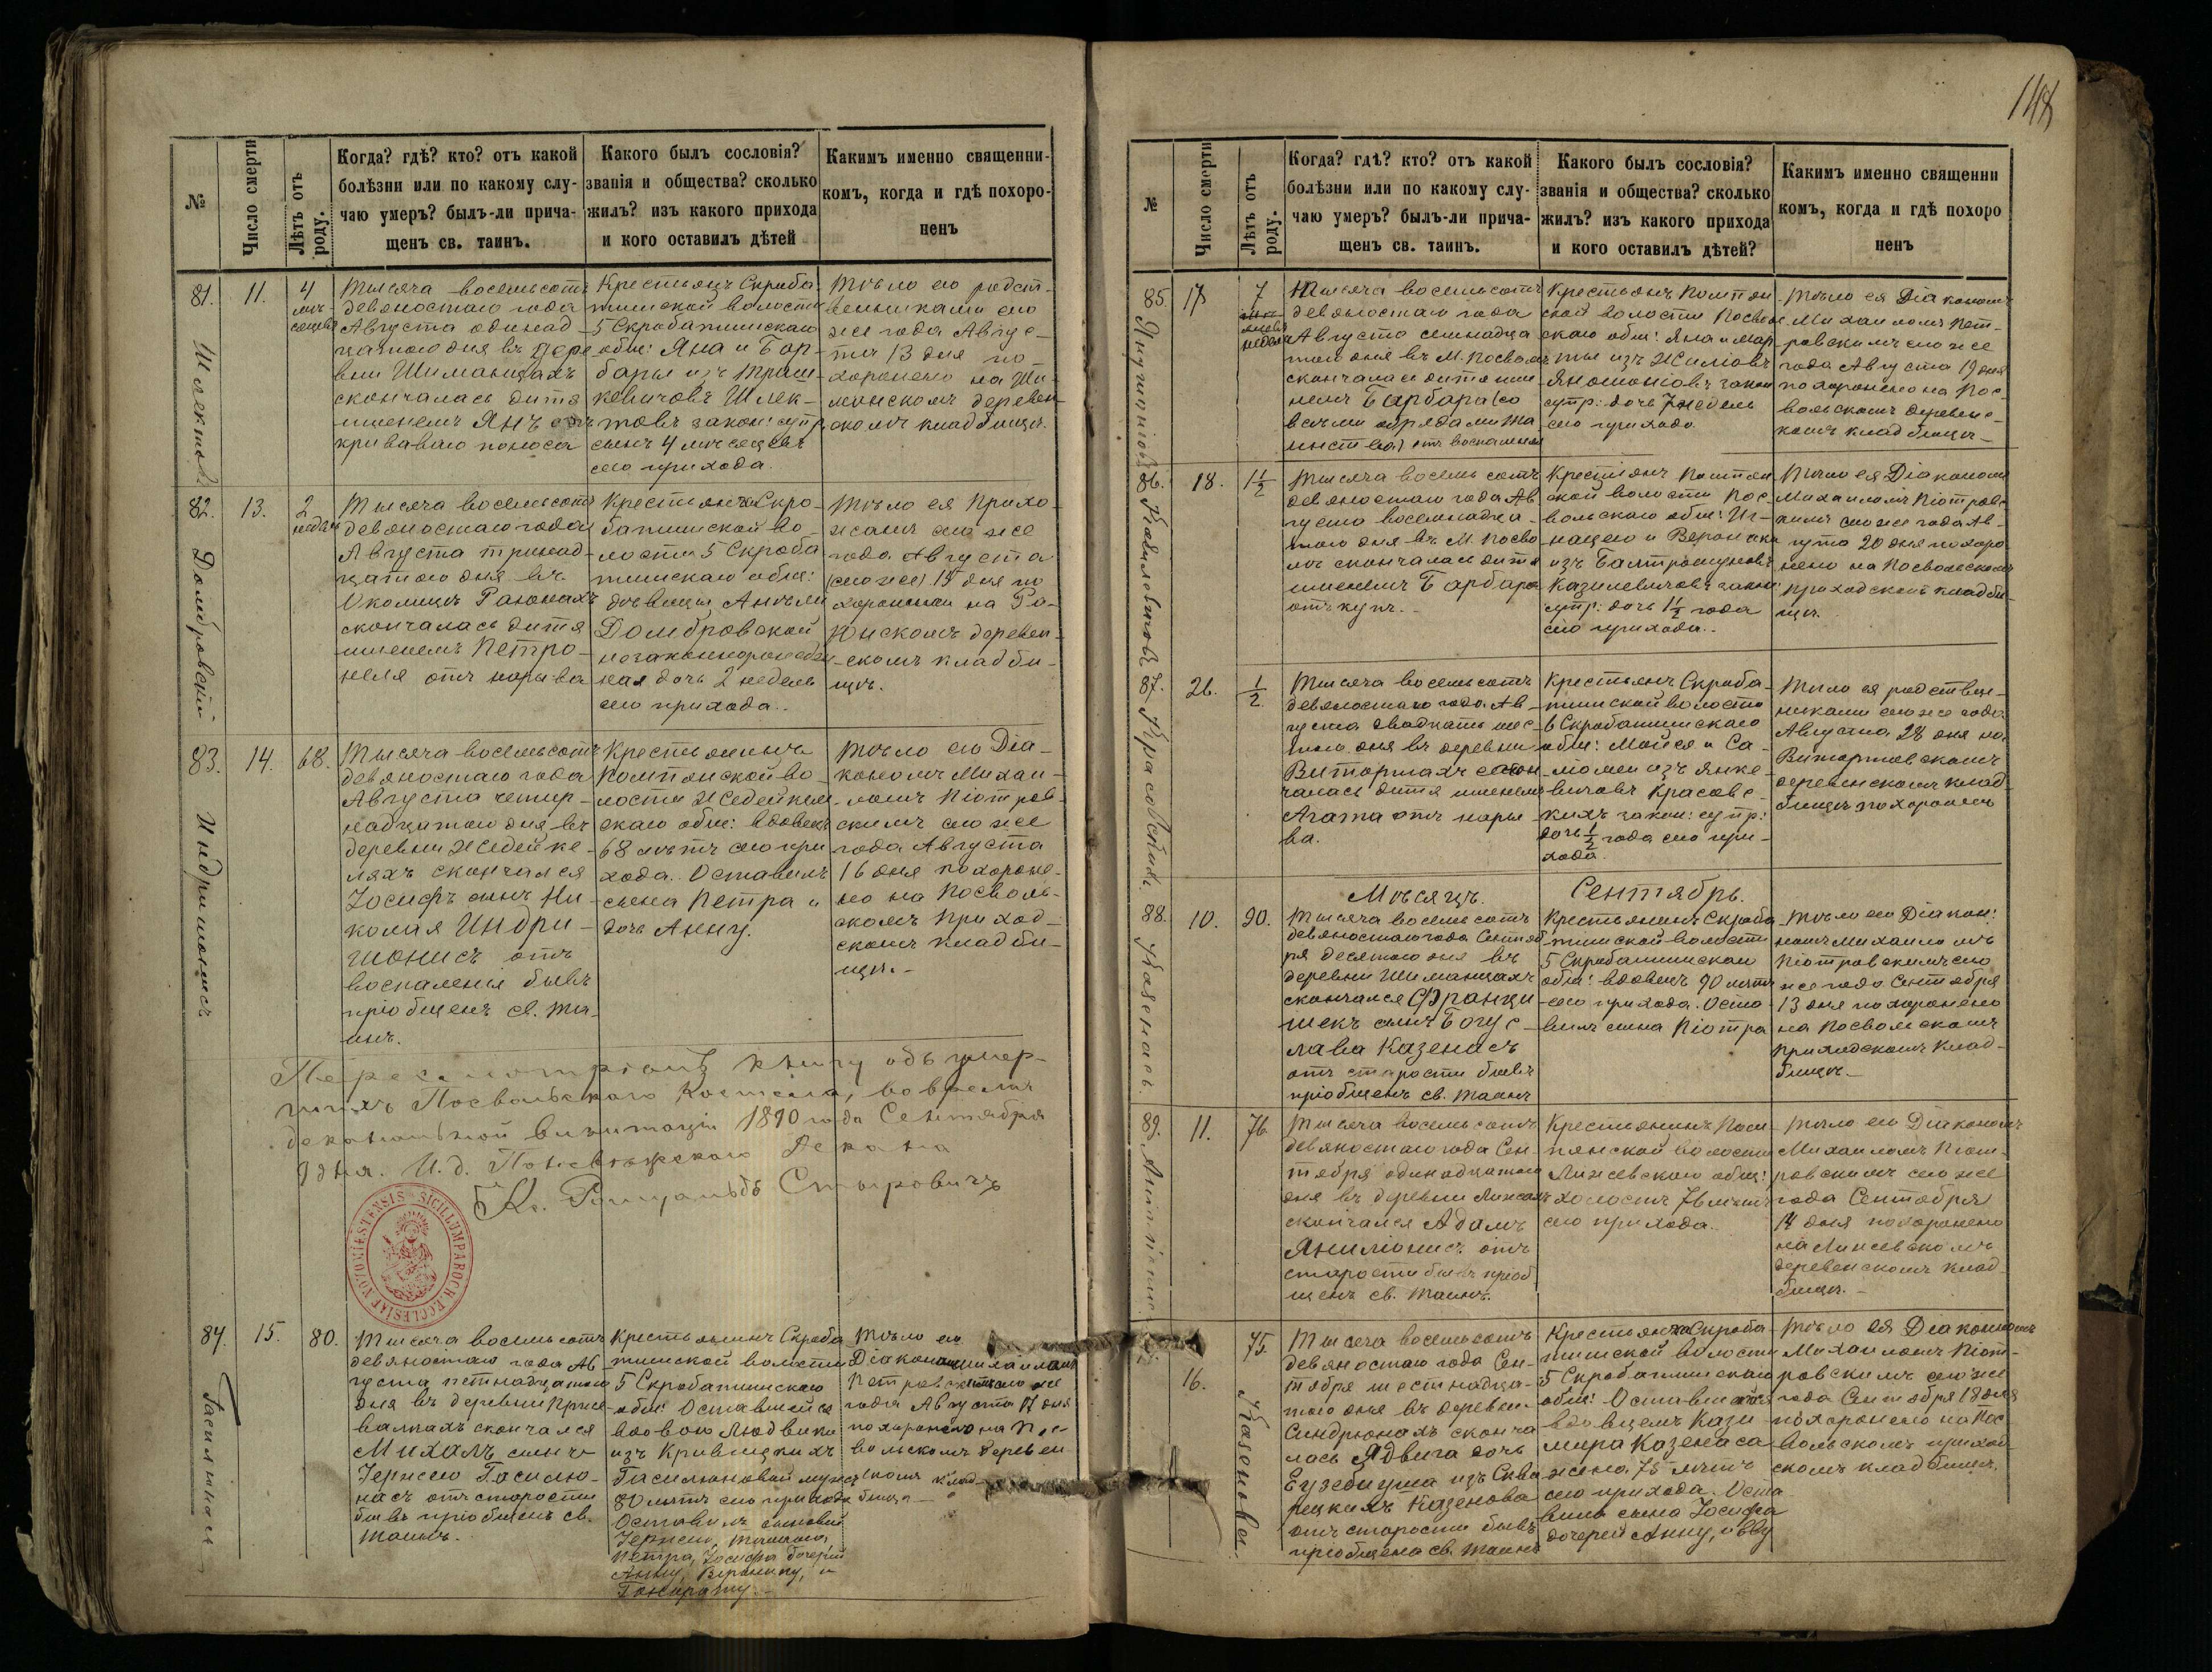 148
№
Число смерти
Лѣтъ отъ роду.
Когда? гдѣ? кто? отъ какой
болѣзни или по какому слу-
чаю умеръ? былъ-ли прича-
щенъ св. таинъ.
Какого былъ сословія?
званія и общества? сколько
жилъ? изъ какого прихода
и кого оставилъ дѣтей
Какимъ именно священни-
комъ, когда и гдѣ похоро-
ненъ
81.
11.
4
мѣ-
сяцевъ
Тысяча восемьсотъ
девяностаго года
Августа одинад-
цатаго дня въ дере
вни Шиманцахъ
скончалась дитя
именемъ Янъ отъ
криваваго поноса
Крестьянъ Скроба
тишской волости
5 Скробатишскаго
общ: Яна и Бар-
бары изъ Траш-
кевичовъ Шлек-
товъ закон: супр
сынъ 4 мѣсяцевъ
сего прихода.
Тѣло его родст-
венниками сего
же года Авгус-
та 13 дня по-
хоронено на Ши-
манскомъ деревен
скомъ кладбищѣ.
82.
Домбровскій
13.
2
недѣли
Тысяча восемьсотъ
девяностаго года
Августа тринад-
цатаго дня въ
Околицѣ Раюнахъ
скончалась дитя
именемъ Петро-
неля отъ нарыва
Крестьянка Скро-
батишской во-
лости 5 Скроба
тишскаго общ:
дѣвицы Анѣли
Домбровской
незаконнорожден
ная дочь 2 недѣль
сего прихода..
Тѣло ея прихо
жаны сего же
года Августа
(сего же) 15 дня по
хоронили на Ра-
юнскомъ деревен-
скомъ кладби-
щѣ.
83.
Индришонисъ
14.
68.
Тысяча восемьсотъ
девяностаго года
Августа четыр-
надцатаго дня въ
деревни Жедейке-
ляхъ скончался
Іосифъ сынъ Ни-
колая Индри-
шонисъ отъ
воспаленія бывъ
пріобщенъ св. Та-
инъ.
Крестьянинъ
Помпянской во-
лости Жедейкель
скаго общ: вдовецъ
68 лѣтъ сего при
хода. Оставилъ
сына Петра и
дочь Анну.
Тѣло его Діа-
кономъ Михаи-
ломъ Піотров-
скимъ сего же
года Августа
16 дня похороне-
но на Посволь-
скомъ приход-
скомъ кладби-
щѣ.-
Пересмотрѣвъ книгу объ умер-
шихъ Посвольскаго костела, во время
деканальной визитаціи 1890 года Сентября
9 дня. И. д. Поневѣжскаго Декана
Кс. Ромуальдъ
SIGILLUM PAROCH. ECCLESIAE
84.
Гасилюнасъ
15.
80.
Тысяча восемьсотъ
девяностаго года Ав
густа пятнадцатаго
дня въ деревни
валкахъ скончался
Михалъ сынъ
Іержего Гасилю-
насъ отъ старости
бывъ пріобщенъ св.
Таинъ.
Крестьянинъ Скроба
тишской волости
5 Скробатишскаго
общ: Оставшейся
вдовою Людвики
изъ Кривицкихъ
Гасилюновой мужъ
80 лѣтъ сего прихода
Оставилъ сыновей
Іержего,
Петра, Іосифа дочерей
Анну, Веронику, и
Тѣло его
Діакономъ Михаиломъ
Петровскимъ сего же
года Августа 17 дня
похоронено на Пос-
вольскомъ деревен
скомъ клад-
бищѣ-
№
Число смерти
Лѣтъ отъ роду.
Когда? гдѣ? кто? отъ какой
болѣзни или по какому слу-
чаю умеръ? былъ-ли прича-
щенъ св. таинъ.
Какого былъ сословія?
званія и общества? сколько
жилъ? изъ какого прихода
и кого оставилъ дѣтей?
Какимъ именно священни
комъ, когда и гдѣ похоро
ненъ
85.
17
7
недѣль
Тысяча восемьсотъ
девяностаго года
Августа семнадца
таго дня въ М. Посволѣ
скончалась дитя име
немъ Барбара (со
всѣми обрядами Та
инства) отъ воспаленія
Крестьянъ Помпян
ской волости Посволь
скаго общ: Яна и Мар
ты изъ
закон
супр: дочь 7 недѣль
сего прихода.
Тѣло ея Діакономъ
Михаиломъ Пет-
ровскимъ сего же
года Августа 19 дня
похоронено на Пос-
вольскомъ деревенс-
комъ кладбищѣ-
86.
18.
1 1/2
Тысяча восемь сотъ
девяностаго года Ав
густа восемнадца-
таго дня въ М. Посво
лѣ скончалась дитя
именемъ Барбара
отъ
Крестьянъ Помпян
ской волости Пос-
вольскаго общ: Иг-
нацего и Вероники
изъ
Казилевичовъ закон
супр: дочь 1 1/2 года
сего прихода..
Тѣло ея Діакономъ
Михаиломъ Піотров-
скимъ сего же года Ав-
густа 20 дня похоро
нено на Посвольскомъ
приходскомъ кладби
щѣ.
87.
Красовскій.
26.
1/2
Тысяча восемьсотъ
девяностаго года Ав-
густа двадцать шес-
таго дня въ деревни
Витартахъ скон
чалась дитя именемъ
Агата отъ нары
ва.
Крестьянъ Скроба-
тишской волости
5 Скробатишскаго
общ: Мойсея и Са-
ломеи изъ Янке-
вичовъ Красовс-
кихъ закон: супр:
дочь 1/2 года сего при-
хода.
Тѣло ея родствен-
никами сего же года
Августа 28 дня на
Витартовскомъ
деревенскомъ клад-
бищѣ похоронено
Мѣсяцъ. Сентябрь.
88.
Казенасъ.
10.
90.
Тысяча восемьсотъ
девяностаго года Сентяб
ря десятаго дня въ
деревни Шиманцахъ
скончался Францы
шекъ сынъ Богус-
лава Казенасъ
отъ старости бывъ
пріобщенъ св. Таинъ
Крестьянинъ Скроба
тишской волости
5 Скробатишскаго
общ: вдовецъ 90 лѣтъ
сего прихода. Оста
вилъ сына Піотра
Тѣло его Діакон:
номъ Михаиломъ
Піотровскимъ сего
же года Сентября
13 дня похоронено
на Посвольскомъ
приходскомъ клад-
бищѣ-
89.
11.
76.
Тысяча восемь сотъ
девяностаго года Сен-
тября одинадцатаго
дня въ деревни
скончался Адамъ
отъ
старости бывъ пріоб
щенъ св. Таинъ.
Крестьянинъ Пом
пянской волости
общ:
холостъ 76 лѣтъ
сего прихода.
Тѣло его Діакономъ
Михаиломъ Піот-
ровскимъ сего же
года Сентября
14 дня похоронено
на
деревенскомъ клад-
бищѣ.-
Казенова.
16.
75.
Тысяча восемьсотъ
девяностаго года Сен-
тября шестнадца-
таго дня въ деревни
Синдрюнахъ сконча
лась Ядвига дочь
Еузебиуша изъ Сква
рецкихъ Казенова
отъ старости бывъ
пріобщена св. Таинъ
Крестьянка Скроба
тишской волости
5 Скробатишскаго
общ: Оставшагося
вдовцемъ Кази
мира Казенаса
жена 75 лѣтъ
сего прихода. Оста
вила сына Іосифа
дочерей Анну, и Еву
Тѣло ея Діакономъ
Михаиломъ Піот-
ровскимъ сего же
года Сентября 18 дня
похоронено на Пос
вольскомъ приход-
скомъ кладбищѣ.